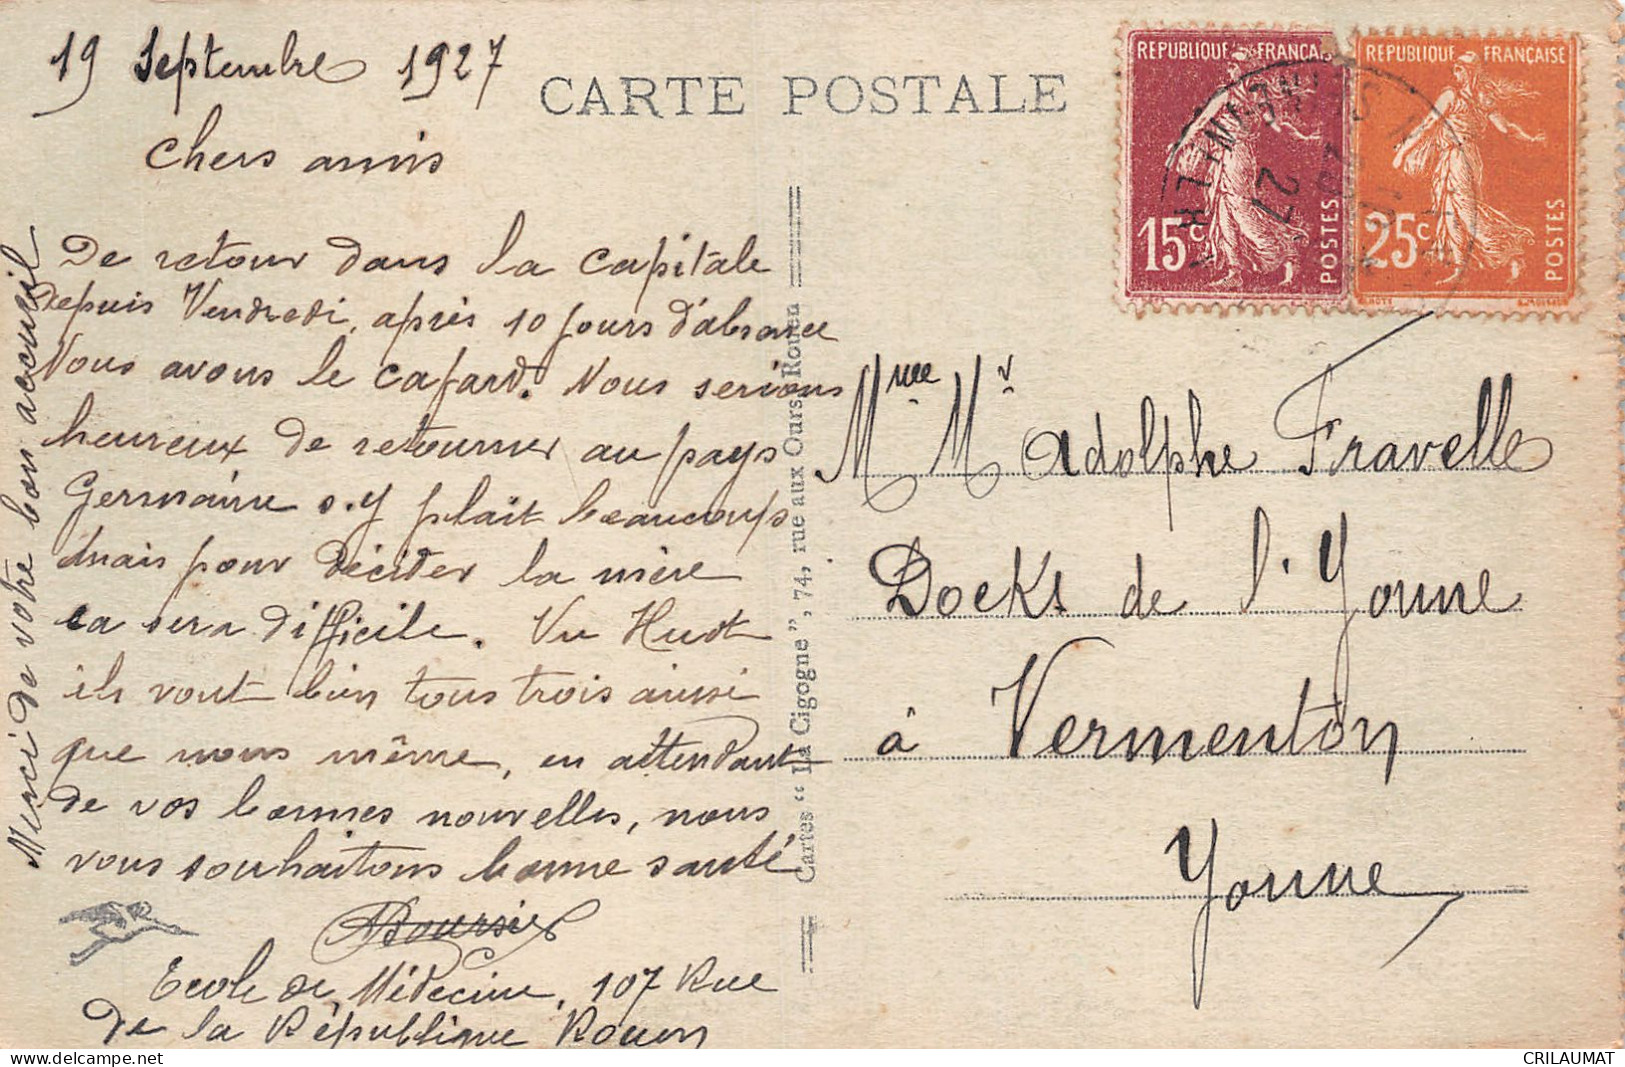 19 Septembre 1927
CARTE POSTALE
Chers amis
De retour dans la capitale
depuis Vendredi, après 10 jours d'absence
Nous avons le cafard. Nous serions
heureux de retourner au pays
Germaine s.y plait beaucoup
mais pour décider la mère
ca sera difficile. Vu Huot
ils vont bien tous trois aussi
que nous même, en attendant
de vos bonnes nouvelles, nous
vous souhaitons bonne santé
Boursier
Ecole de Médecine, 107 Rue
de la République Rouen
Merci de votre bon accueil
Cartes “ La Cigogne ”, 74, rue aux Ours, Rouen
REPUBLIQUE FRANÇAISE
15c
POSTES
REPUBLIQUE FRANÇAISE
25c
POSTES
27
Mme Mr Adolphe Fravelle
Docks de l'Yonne
à Vermenton
Yonne
CRILAUMAT
delcampe.net